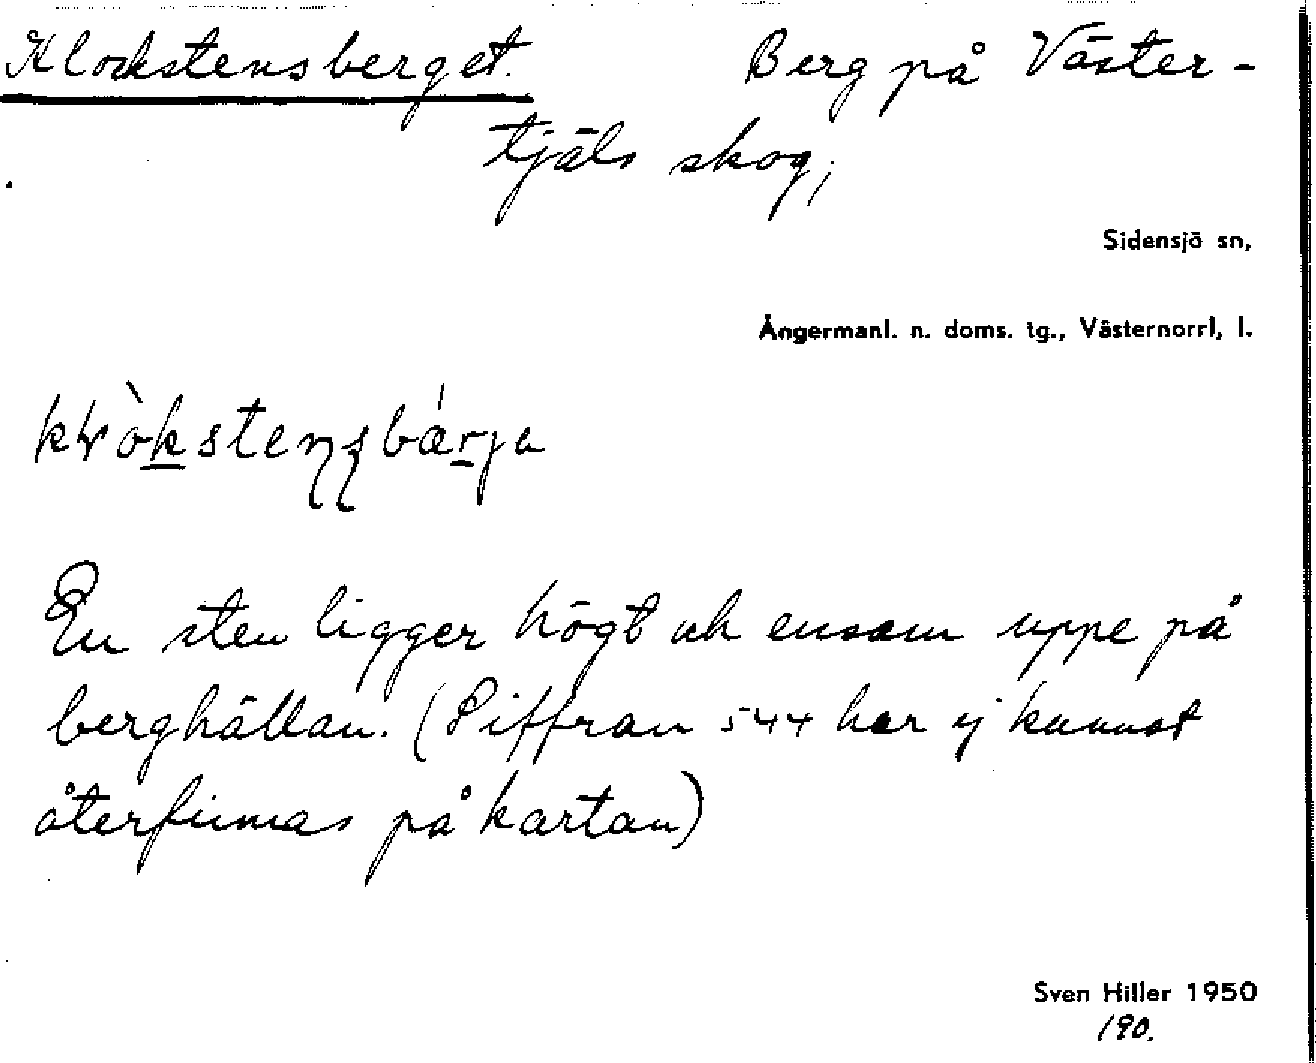 Klockstensberget. Berg på Väster-
tjäls skog;
Sidensjö sn,
Ångermanl. n. doms. tg., Västernorrl, l.
En sten ligger högt och ensam uppe på
berghällan. (Siffran 544 har ej kunnat
återfinnas på kartan)
Sven Hiller 1950
190.